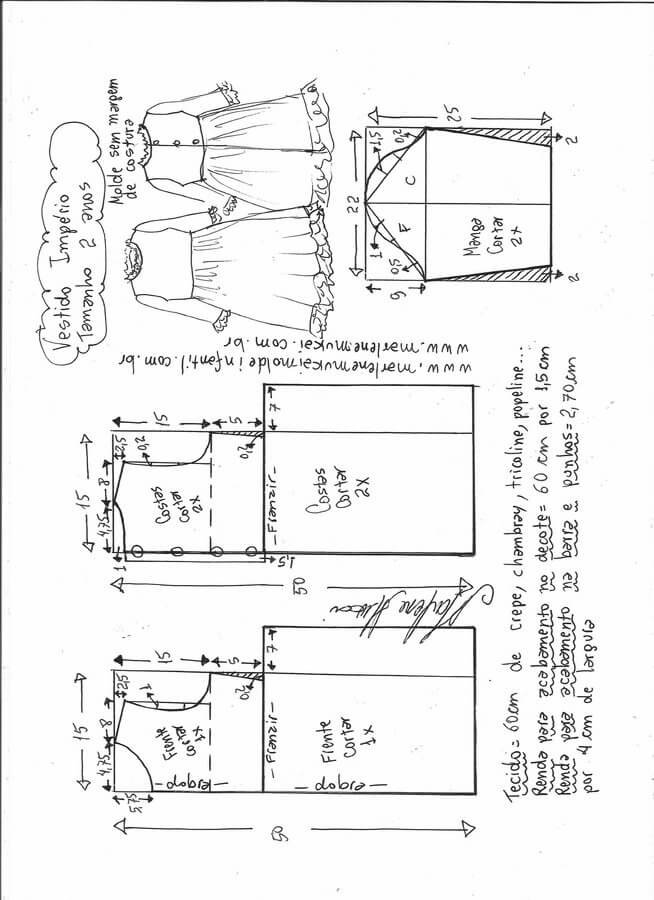 Vestido Império
Tamanho 2 anos
Molde sem margem
de costura
www.marlenemukaimoldeinfantil.com.br
www.marlenemukai.com.br
25
22
1,5
0,2
C
F
1
0,5
9
Manga
Cortar
2x
2
2
15
4,75
8
2,5
0,2
15
5
0,2
7
1
Costas
Cortar
2x
1,5
Franzir
Costas
Cortar
2x
50
15
4,75
8
2,5
1
15
5
0,2
7
5,75
Frente
Cortar
1x
dobra
Franzir
Frente
Cortar
1x
dobra
50
Marlene Mukai
Tecido= 60cm de crepe, chambray, tricoline, popeline...
Renda para acabamento no decote= 60 cm por 1,5cm
Renda para acabamento na barra e punhos= 2,70cm
por 4 cm de largura